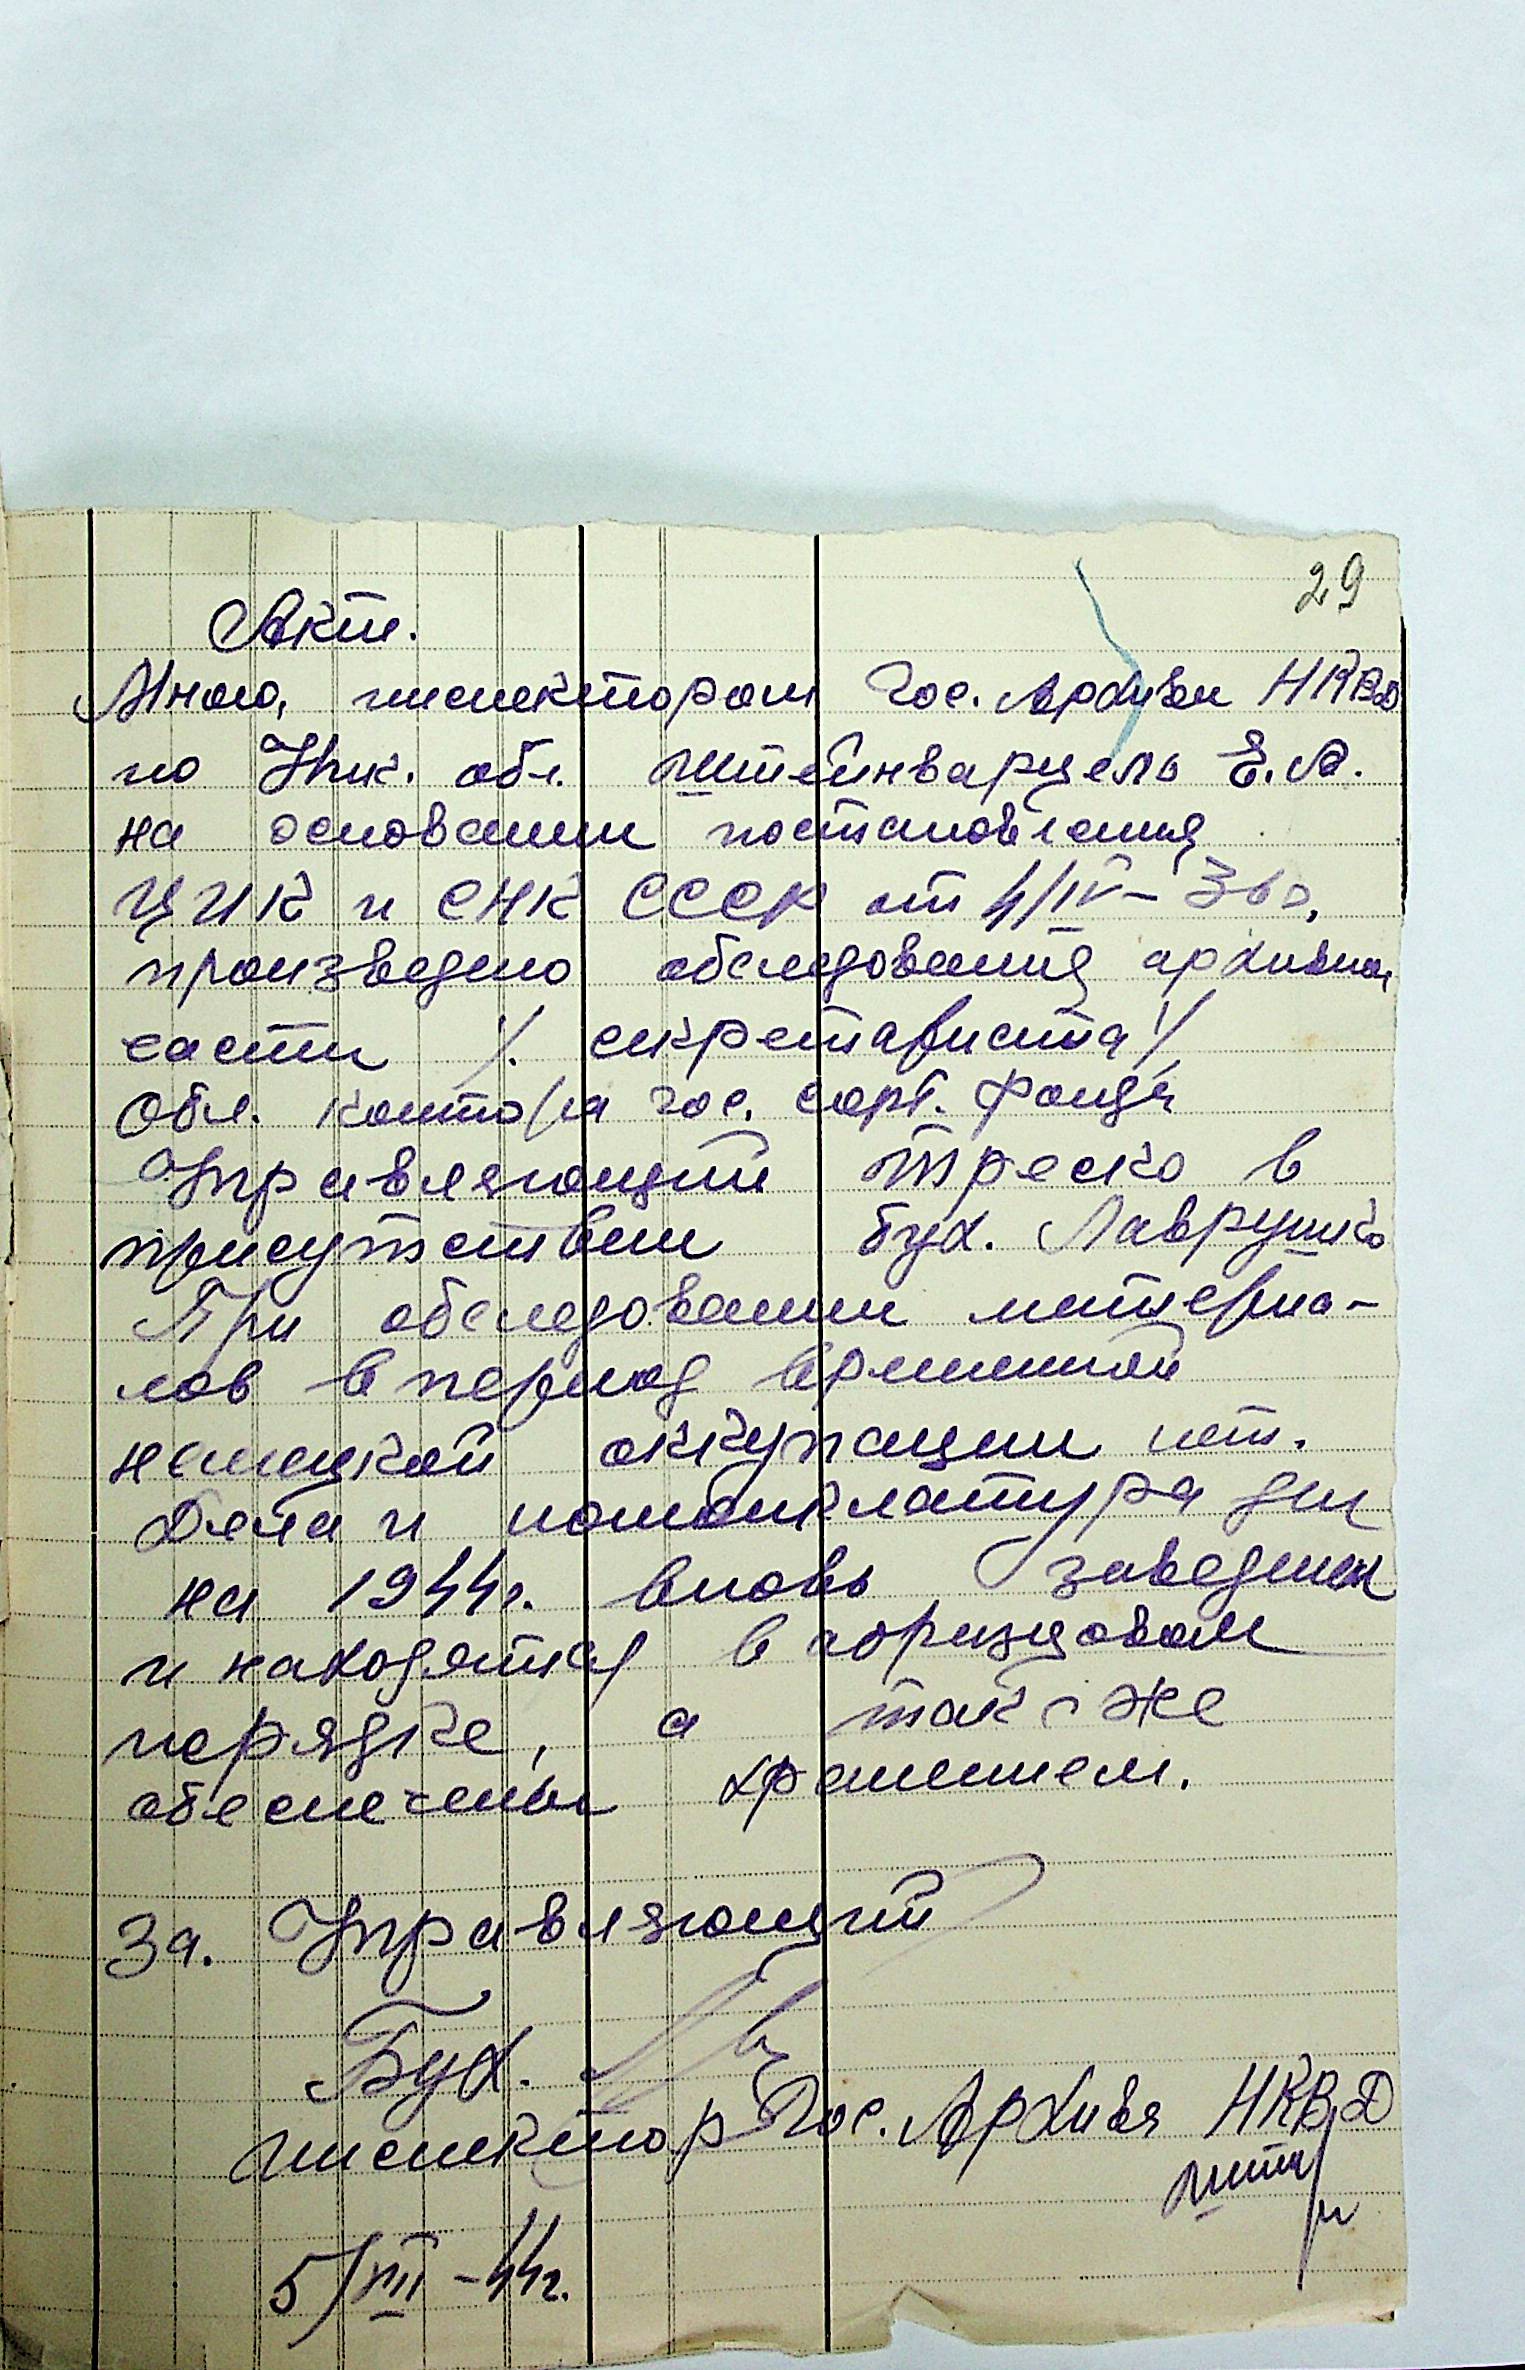 29
Акт.
Мною, инспектором Гос. Архива НКВД
по Ник. обл. Штейнварцель Е.А.
на основании постановления
ЦИК и СНК СССР от 4/IV-36г.
произведено обследования архивной
части /. секретариата /
Обл. контора гос. сорт. фонда
Управляющий Треско в
присутствии бух. Лаврушко
При обследовании материа-
лов в период временной
немецкой оккупации нет.
Дела и номенклатура дел
на 1944г. вновь заведены
и находятся в образцовом
порядке, а так-же
обеспечены хранением.
За. Управляющий
Бух.
инспектор Гос. Архива НКВД
5/VIII-44г.